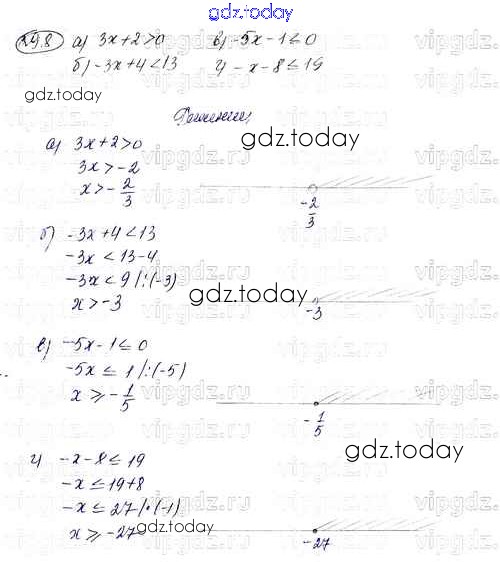 gdz.today
24.8 а) 3x+2>0 в) -5x-1≤0
б) -3x+4<13 г) -x-8≤19
gdz.today
Решение:
а) 3x+2>0
3x>-2
x>-2/3
gdz.today
-2/3
б) -3x+4<13
-3x<13-4
-3x<9 /:(-3)
x>-3
gdz.today
-3
в) -5x-1≤0
-5x≤1/:(-5)
x≥-1/5
-1/5
gdz.today
г) -x-8≤19
-x≤19+8
-x≤27/·(-1)
x≥-27
gdz.today
-27
vipgdz.ru